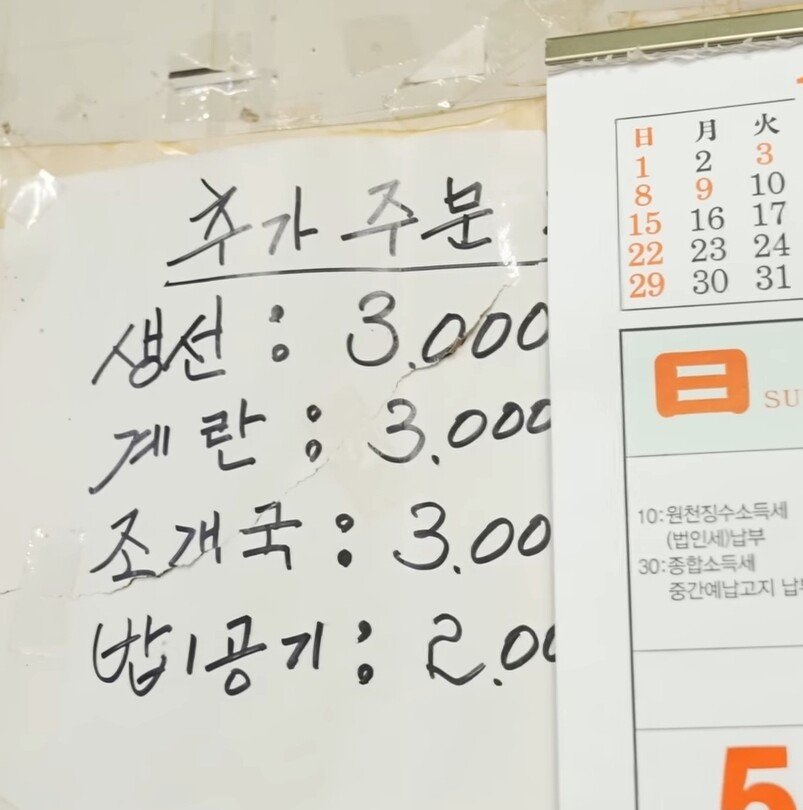 추가 주문
생선 : 3.000
계란 : 3.000
조개국 : 3.00
밥1공기 : 2.00
日 月 火
1 2 3
8 9 10
15 16 17
22 23 24
29 30 31
日 SU
10:원천징수소득세
(법인세)납부
30:종합소득세
중간예납고지 납부
5